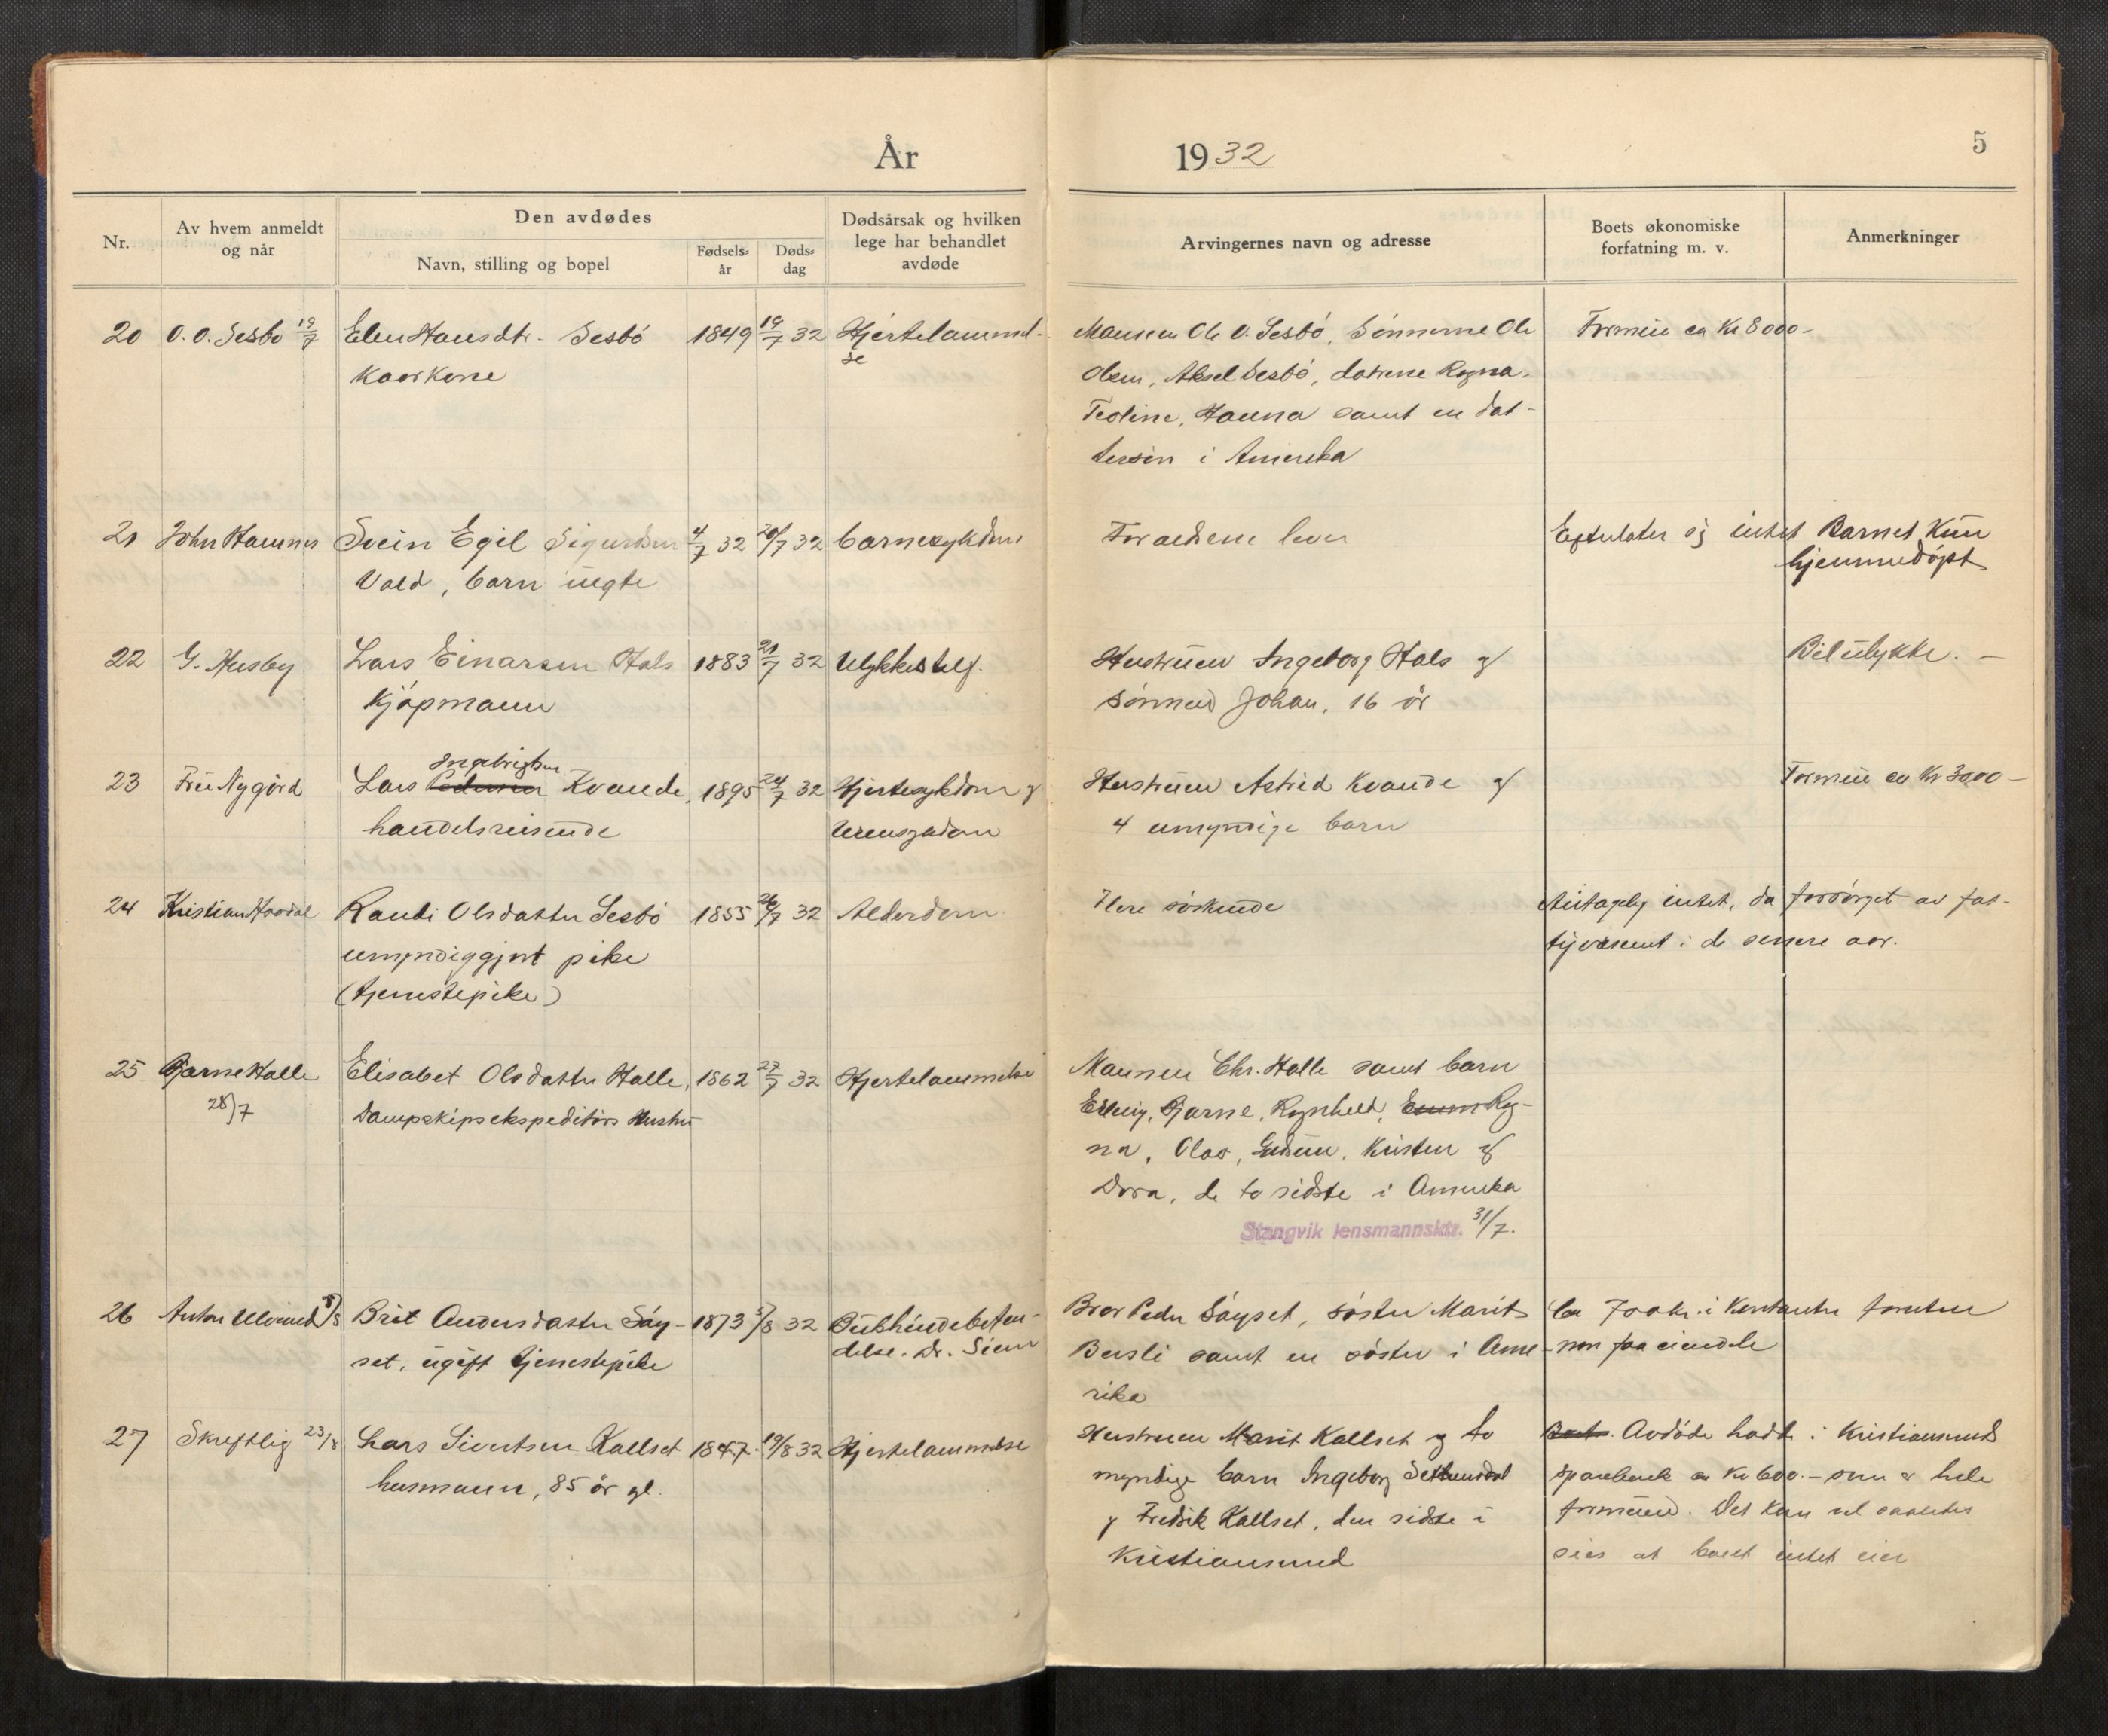 År 1932
5
Nr.
Av hvem anmeldt
og når
Den avdødes
Navn, stilling og bopel
Fødsels-
år
Døds-
dag
Dødsårsak og hvilken
lege har behandlet
avdøde
Arvingernes navn og adresse
Boets økonomiske
forfatning m. v.
Anmerkninger
20 O. O. Sesbø 19/7 Elen Hansdtr. Sesbö 1849 19/7 32 Hjertelammel-
se
kaarkone
Mannen Ole O. Sesbö, Sönnerne Ole
Olsen, Aksel Sesbö, dötrene Ragna
Teoline, Hanna samt en dat-
tersön i Amerika
Formue ca Kr 8000-
21 John Hamnes Svein Egil Sigurdsen 4/7 32 20/7 32 barnesykdom
Vald, barn uegte
Foraeldrene lever
Efterlater sig intet
Barnet kun
hjemmedöpt
22 G. Husby Lars Einarsen Hals 1883 21/7 32 Ulykkestilf.
Kjöpmann
Hustruen Ingeborg Hals og
sönnen Johan, 16 år
Bilulykke. -
23 Fru Nygård Lars Pedersen Ingebrigtsen Kvande, 1895 24/7 32 Hjertesykdom og
handelsreisende
Hustruen Astrid Kvande og
4 umyndige barn
Formue ca Kr 3000-
24 Kristian Moodal Randi Olsdatter Sesbö 1855 26/7 32 Alderdom
umyndiggjort pike
(tjenestepike)
Flere söskende
Antagelig intet, da forsörget av fat-
tigvesenet i de senere aar.
25 Bjarne Halle
28/7
Elisabet Olsdatter Halle, 1862 27/7 32 Hjertelammelse
Dampskipsekspeditörs Hustru
Mannen Chr. Halle samt barn
Bjarne, Ragnhild, Rag-
na, Olav, Gudrun, Kristen og
Dora, de to sidste i Amerika
Stangvik lensmannsktr. 31/7.
26 Anton Ulvund 8/8 Brit Andersdatter Säy- 1873 5/8 32
set, ugift tjenestepike
delse. Dr.
Bror Peder Säyset, söster Marit
samt en söster i Ame-
rika
Ca 700 kr. i kontanter foruten
noen faa eiendele
27 Skriftlig 23/8 Lars Sivertsen Kallset 1847. 19/8 32 Hjertelammelse
husmann, 85 år gl.
Hustruen Marit Kallset og to
myndige barn Ingeborg Settemsdal
og Fredrik Kallset, den sidste i
Kristiansund
Boets. Avdöde hadde i Kristiansunds
sparebank ca Kr 600.- som er hele
formuen. Det kan vel saaledes
sies at boet intet eier